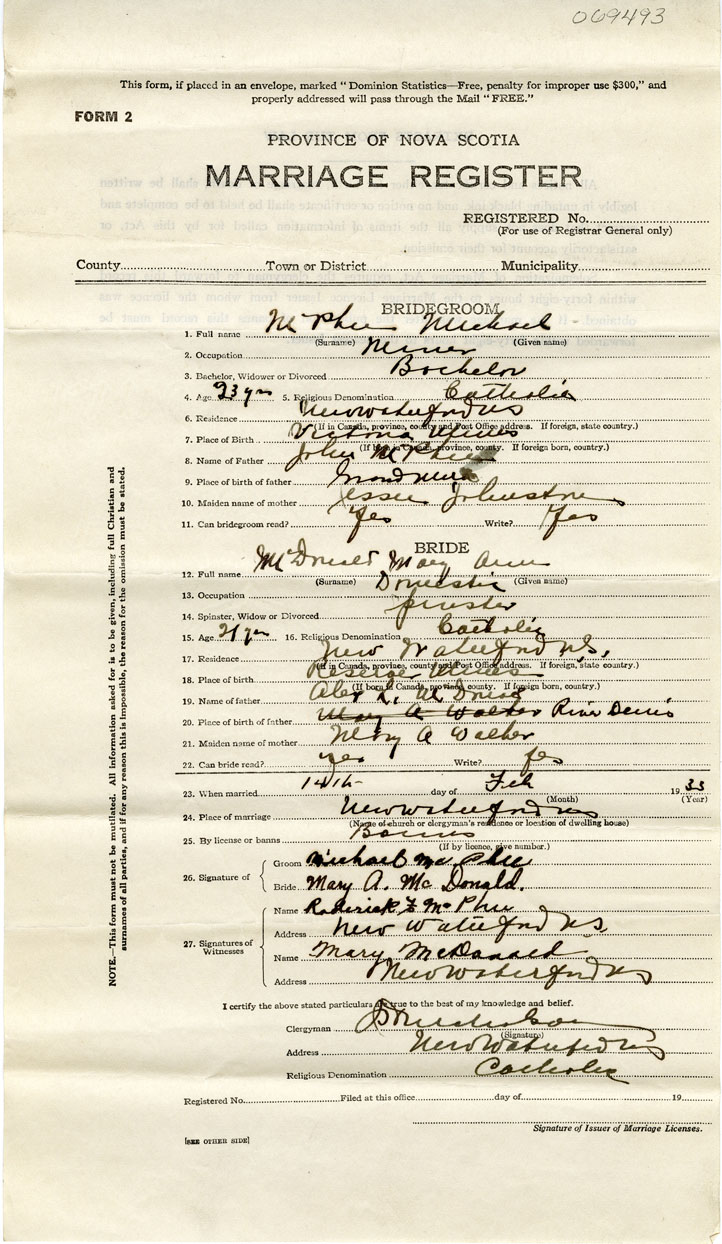 069493
This form, if placed in an envelope, marked "Dominion Statistics—Free, penalty for improper use $300," and
properly addressed will pass through the Mail "FREE."
FORM 2
PROVINCE OF NOVA SCOTIA
MARRIAGE REGISTER
REGISTERED No.
(For use of Registrar General only)
County Town or District Municipality
BRIDEGROOM
1. Full name McPhee Michael
(Surname) (Given name)
2. Occupation Miner
3. Bachelor, Widower or Divorced Bachelor
4. Age 23 yrs 5. Religious Denomination Catholic
6. Residence New Waterford NS
(If in Canada, province, county and Post Office address. If foreign, state country.)
7. Place of Birth Victoria Mines
(If born in Canada, province, county. If foreign born, country.)
8. Name of Father John McPhee
9. Place of birth of father Grand Mira
10. Maiden name of mother Jessie Johnstone
11. Can bridegroom read? Yes Write? Yes
BRIDE
12. Full name McDonald Mary Ann
(Surname) (Given name)
13. Occupation Domestic
14. Spinster, Widow or Divorced Spinster
15. Age 21 yrs 16. Religious Denomination Catholic
17. Residence New Waterford NS,
(If in Canada, province, county and Post Office address. If foreign, state country.)
18. Place of birth Reserve Mines
(If born in Canada, province, county. If foreign born, country.)
19. Name of father Alex R. McDonald
20. Place of birth of father Mary A Walker River Denis
21. Maiden name of mother Mary A Walker
22. Can bride read? yes Write? yes
23. When married 14th day of Feb 1933
(Month) (Year)
24. Place of marriage New Waterford NS
(Name of church or clergyman's residence or location of dwelling house)
25. By license or banns Banns
(If by licence, give number.)
26. Signature of Groom Michael McPhee
Bride Mary A. McDonald.
27. Signatures of Witnesses Name Roderick F McPhee
Address New Waterford NS,
Name Mary McDonald
Address New Waterford NS
I certify the above stated particulars are true to the best of my knowledge and belief.
Clergyman Nicholson
(Signature)
Address New Waterford NS
Religious Denomination Catholic
Registered No. Filed at this office day of 19
Signature of Issuer of Marriage Licenses.
[SEE OTHER SIDE]
NOTE.—This form must not be mutilated. All information asked for is to be given, including full Christian and
surnames of all parties, and if for any reason this is impossible, the reason for the omission must be stated.